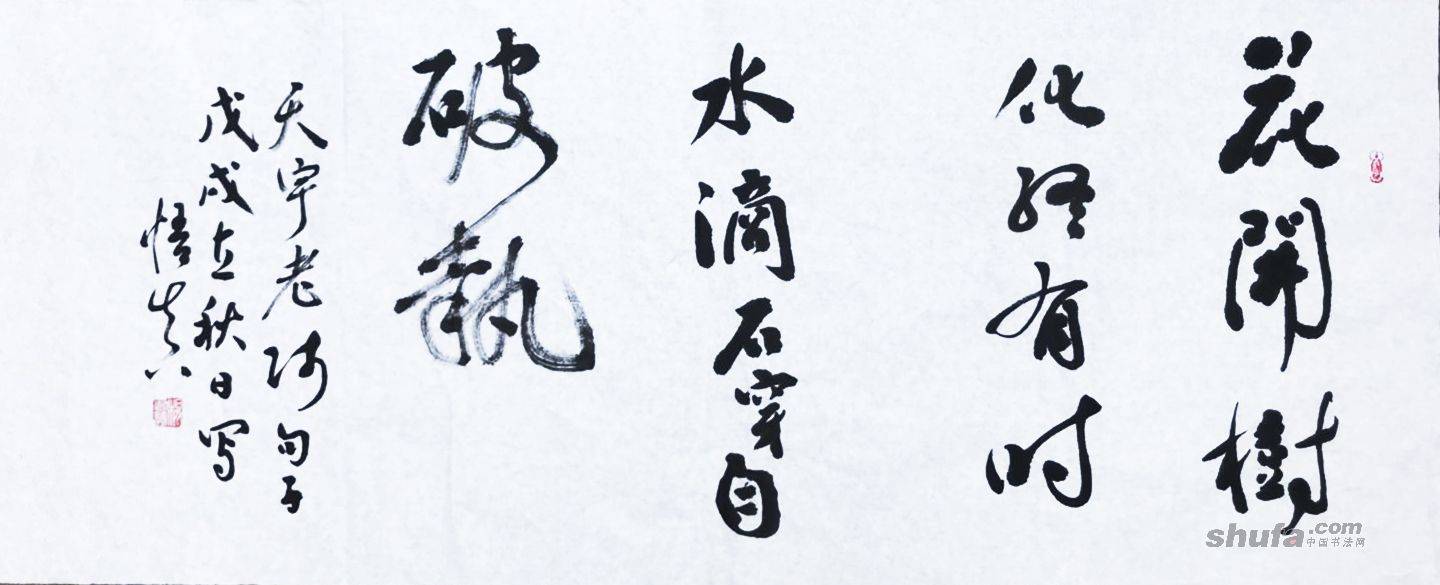 花開樹
化終有时
水滴石穿自
破執
天宇老师句子
戊戌立秋日写
悟真
shufa.com
中国书法网